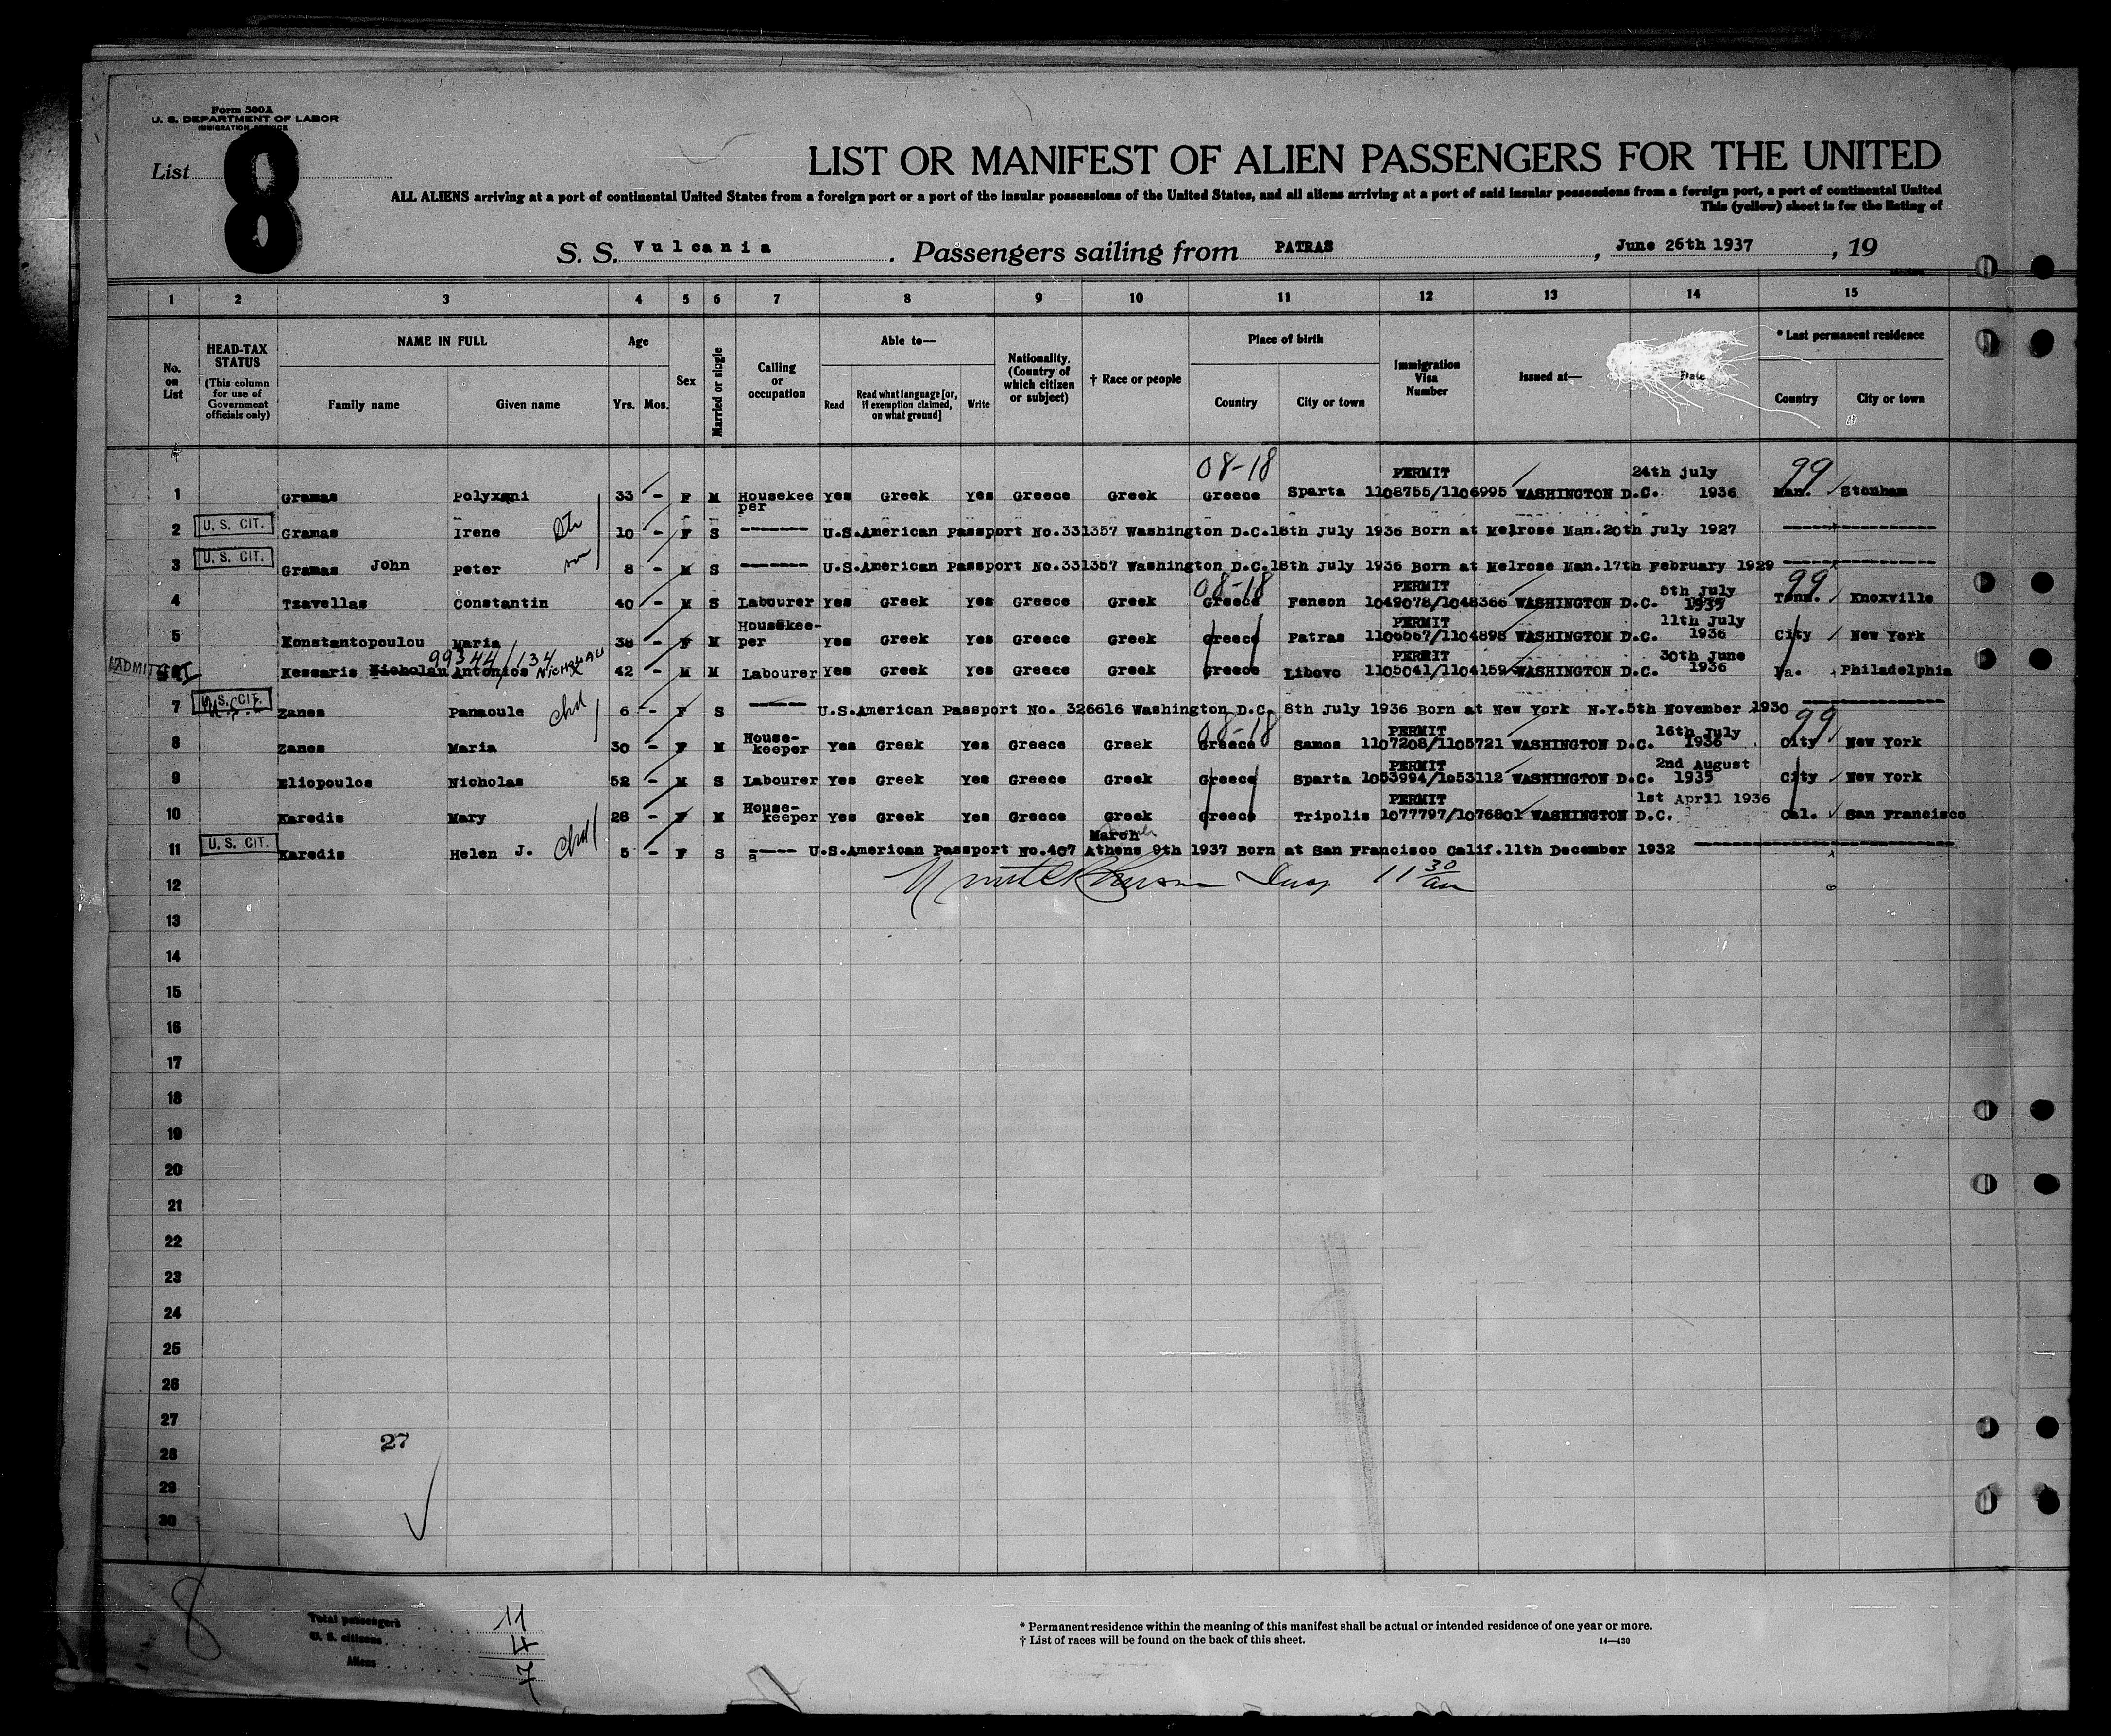 Form 500A
U. S. DEPARTMENT OF LABOR
IMMIGRATION SERVICE
List 8
LIST OR MANIFEST OF ALIEN PASSENGERS FOR THE UNITED
ALL ALIENS arriving at a port of continental United States from a foreign port or a port of the insular possessions of the United States, and all aliens arriving at a port of said insular possessions from a foreign port, a port of continental United
This (yellow) sheet is for the listing of
S. S. Vulcania. Passengers sailing from PATRAS, June 26th 1937, 19
1 2 3 4 5 6 7 8 9 10 11 12 13 14 15
No. on List
HEAD-TAX STATUS (This column for use of Government officials only)
NAME IN FULL Family name Given name
Age Yrs. Mos.
Sex
Married or single
Calling or occupation
Able to— Read Read what language [or, if exemption claimed, on what ground] Write
Nationality. (Country of which citizen or subject)
† Race or people
Place of birth Country City or town
Immigration Visa Number
Issued at—
Date
* Last permanent residence Country City or town
08-18 PERMIT 24th july 99
1 Gramas Polyxeni 33 - F M Housekee per Yes Greek Yes Greece Greek Greece Sparta 1108755/1106995 WASHINGTON D.C. 1936 Man. Stonham
2 U. S. CIT. Gramas Irene 10 - F S ------- U.S.American Passport No.331357 Washington D.C.18th July 1936 Born at Melrose Man.20th July 1927
3 U. S. CIT. Gramas John Peter son 8 - M S ------- U.S.American Passport No.331357 Washington D.C.18th July 1936 Born at Melrose Man.17th February 1929
08-18 PERMIT 5th July 99
4 Tzavellas Constantin 40 - M S Labourer Yes Greek Yes Greece Greek Greece Feneon 1049078/1048366 WASHINGTON D.C. 1935 Tenn. Knoxville
PERMIT 11th July
5 Konstantopoulou Maria 38 - F M Housekee- per Yes Greek Yes Greece Greek Greece Patras 1106667/1104898 WASHINGTON D.C. 1936 City New York
99344/134 PERMIT 30th June
ADMITTED Kessaris Nicholas Antonios NICHOLAU 42 - M M Labourer Yes Greek Yes Greece Greek Greece Libovo 1105041/1104159 WASHINGTON D.C. 1936 Pa. Philadelphia
7 U. S. CIT. Zanes Panaoule chd 6 - F S ----- U.S.American Passport No. 326616 Washington D.C. 8th July 1936 Born at New York N.Y.5th November 1930
08-18 PERMIT 16th July 99
8 Zanes Maria 30 - F M House- keeper Yes Greek Yes Greece Greek Greece Samos 1107208/1105721 WASHINGTON D.C. 1936 City New York
PERMIT 2nd August
9 Eliopoulos Nicholas 52 - M S Labourer Yes Greek Yes Greece Greek Greece Sparta 1053994/1053112 WASHINGTON D.C. 1935 City New York
PERMIT 1st April 1936
10 Karedis Mary 28 - F M House- keeper Yes Greek Yes Greece Greek Greece Tripolis 1077797/1076801 WASHINGTON D.C. Cal. San Francisco
March
11 U. S. CIT. Karedis Helen J. chd 5 - F S ----- U.S.American Passport No.407 Athens 9th 1937 Born at San Francisco Calif.11th December 1932
12 Insp 11 30 am
13
14
15
16
17
18
19
20
21
22
23
24
25
26
27
27
28
29
30
8
Total passengers 11
U. S. citizens 4
Aliens 7
* Permanent residence within the meaning of this manifest shall be actual or intended residence of one year or more.
† List of races will be found on the back of this sheet. 14—430